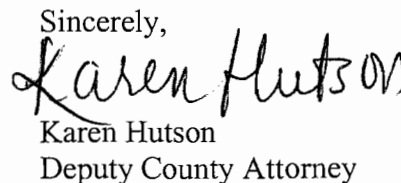 Sincerely,
Karen Hutson
Karen Hutson
Deputy County Attorney